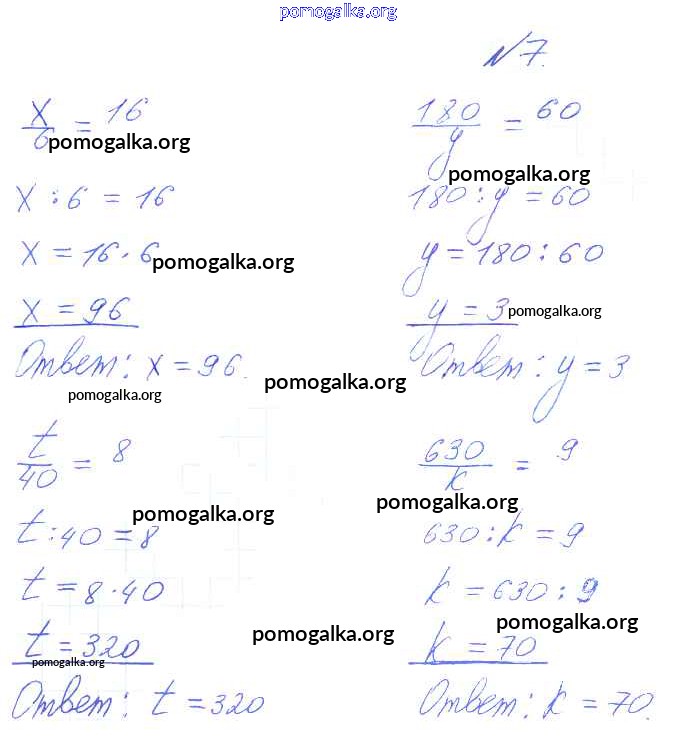 pomogalka.org
№7.
x/6 = 16
pomogalka.org
x : 6 = 16
x = 16 · 6
pomogalka.org
x = 96
Ответ: x = 96.
pomogalka.org
180/y = 60
pomogalka.org
180 : y = 60
y = 180 : 60
y = 3
pomogalka.org
Ответ: y = 3
pomogalka.org
t/40 = 8
pomogalka.org
t : 40 = 8
t = 8 · 40
t = 320
pomogalka.org
pomogalka.org
Ответ: t = 320
630/k = 9
pomogalka.org
630 : k = 9
k = 630 : 9
pomogalka.org
k = 70
Ответ: k = 70.